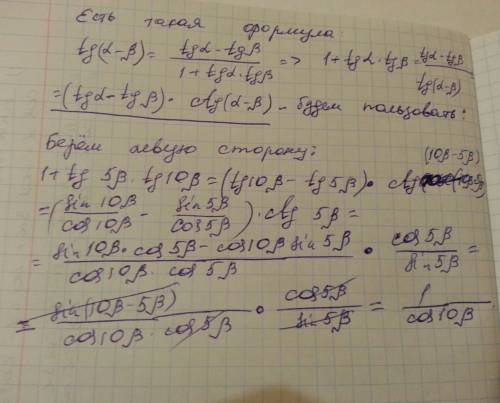 Есть такая формула
tg(α-β) = (tgα - tgβ)/(1 + tgα·tgβ) => 1 + tgα·tgβ = (tgα - tgβ)/tg(α-β)
=(tgα - tgβ)· ctg(α-β) - будем пользовать:
Берём левую сторону:
1 + tg 5β · tg 10β = (tg 10β - tg 5β) · ctg (10β - 5β)
=(sin 10β/cos 10β - sin 5β/cos 5β) · ctg 5β =
= (sin 10β · cos 5β - cos 10β sin 5β)/(cos 10β · cos 5β) · cos 5β/sin 5β =
= sin(10β - 5β)/(cos 10β · cos 5β) · cos 5β/sin 5β = 1/cos 10β